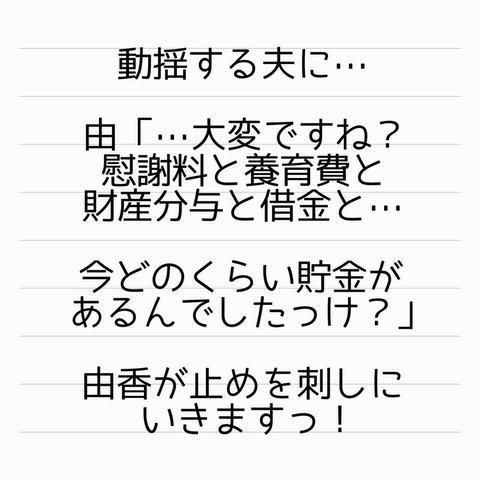 動揺する夫に…
由「…大変ですね？
慰謝料と養育費と
財産分与と借金と…
今どのくらい貯金が
あるんでしたっけ？」
由香が止めを刺しに
いきますっ！